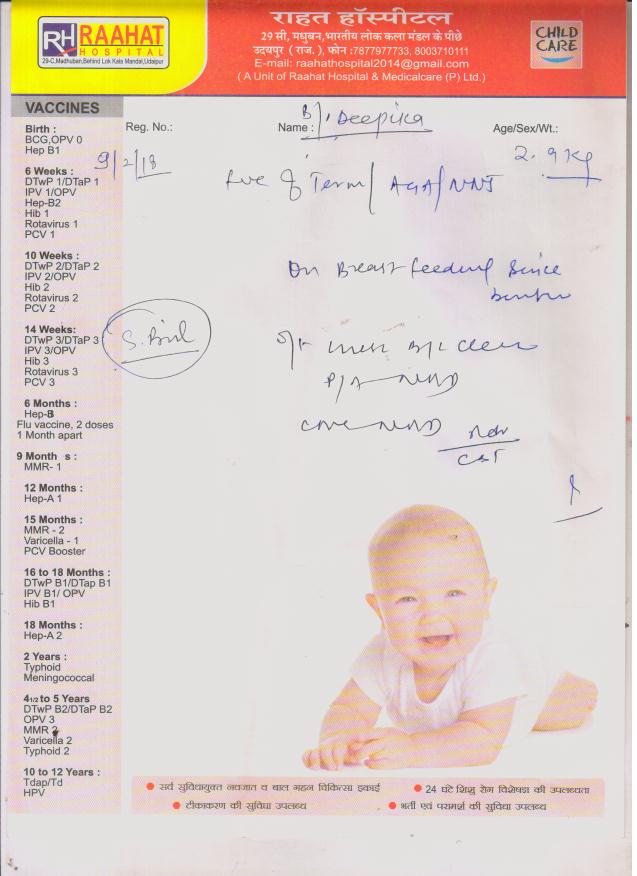 RH RAAHAT
HOSPITAL
29-C,Madhuban,Behind Lok Kala Mandal,Udaipur
राहत हॉस्पीटल
29 सी, मधुबन,भारतीय लोक कला मंडल के पीछे
उदयपुर ( राज. ), फोन :7877977733, 8003710111
E-mail: raahathospital2014@gmail.com
( A Unit of Raahat Hospital & Medicalcare (P) Ltd.)
CHILD
CARE
VACCINES
Birth :
BCG,OPV 0
Hep B1
6 Weeks :
DTwP 1/DTaP 1
IPV 1/OPV
Hep-B2
Hib 1
Rotavirus 1
PCV 1
10 Weeks :
DTwP 2/DTaP 2
IPV 2/OPV
Hib 2
Rotavirus 2
PCV 2
14 Weeks:
DTwP 3/DTaP 3
IPV 3/OPV
Hib 3
Rotavirus 3
PCV 3
6 Months :
Hep-B
Flu vaccine, 2 doses
1 Month apart
9 Month s :
MMR- 1
12 Months :
Hep-A 1
15 Months :
MMR - 2
Varicella - 1
PCV Booster
16 to 18 Months :
DTwP B1/DTap B1
IPV B1/ OPV
Hib B1
18 Months :
Hep-A 2
2 Years :
Typhoid
Meningococcal
4 1/2 to 5 Years
DTwP B2/DTaP B2
OPV 3
MMR 2
Varicella 2
Typhoid 2
10 to 12 Years :
Tdap/Td
HPV
Reg. No.:
Name : B/o Deepika
Age/Sex/Wt.:
9/2/18
2.9 Kg
Term / AGA / NNJ
On Breast feeding Since
S. Bil
P/A
CNS
CST
सर्व सुविधायुक्त नवजात व बाल गहन चिकित्सा इकाई
24 घंटे शिशु रोग विशेषज्ञ की उपलब्धता
टीकाकरण की सुविधा उपलब्ध
भर्ती एवं परामर्श की सुविधा उपलब्ध